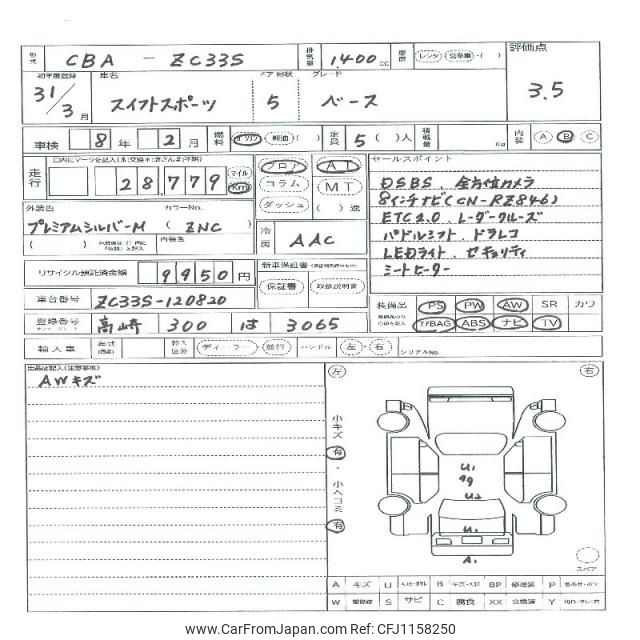 型式 CBA - ZC33S 排気量 1400 cc 車歴 レンタ・営業車・( ) 評価点
初年度登録 車名 ドア形状 グレード
31/3月 スイフトスポーツ 5 ベース 3.5
車検 8年 2月 燃料 ガソリン・軽油・( ) 定員 5( )人 積載量 Kg 内装 A B C
走行 28,779 マイル Km
フロア AT
コラム MT
ダッシュ ( )速
外装色 カラーNo.
プレミアムシルバーM (ZNC)
( ) 内装色
冷房 AAC
セールスポイント
DSBS. 全方位カメラ
8インチナビ(CN-RZ846)
ETC2.0 レーダークルーズ
パドルシフト. ドラレコ
LEDライト. セキュリティ
シートヒーター
リサイクル預託済金額 9950円
新車保証書
保証書 取扱説明書
車台番号 ZC33S-120820
登録番号 高崎 300 は 3065
装備品 PS PW AW SR カワ
エアBAG ABS ナビ TV
輸入車 年式 輸入区分 ディーラー・並行 ハンドル 左・右 シリアルNo.
出品店記入(注意事項)
AWキズ
左 右
小キズ 有・小ヘコミ 有
U1
U2
U1
A1
スペア
A キズ U B キズ・ヘコミ BP 修理跡 P
W S サビ C 腐食 XX 交換済 Y
www.CarFromJapan.com / Ref: CFJ1158250